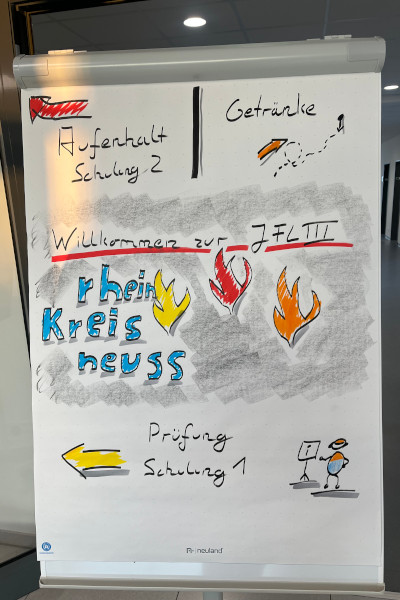 Aufenhalt
Schulung 2
Getränke
Willkommen zur JFL III
rhein
Kreis
neuss
Prüfung
Schulung 1
neuland